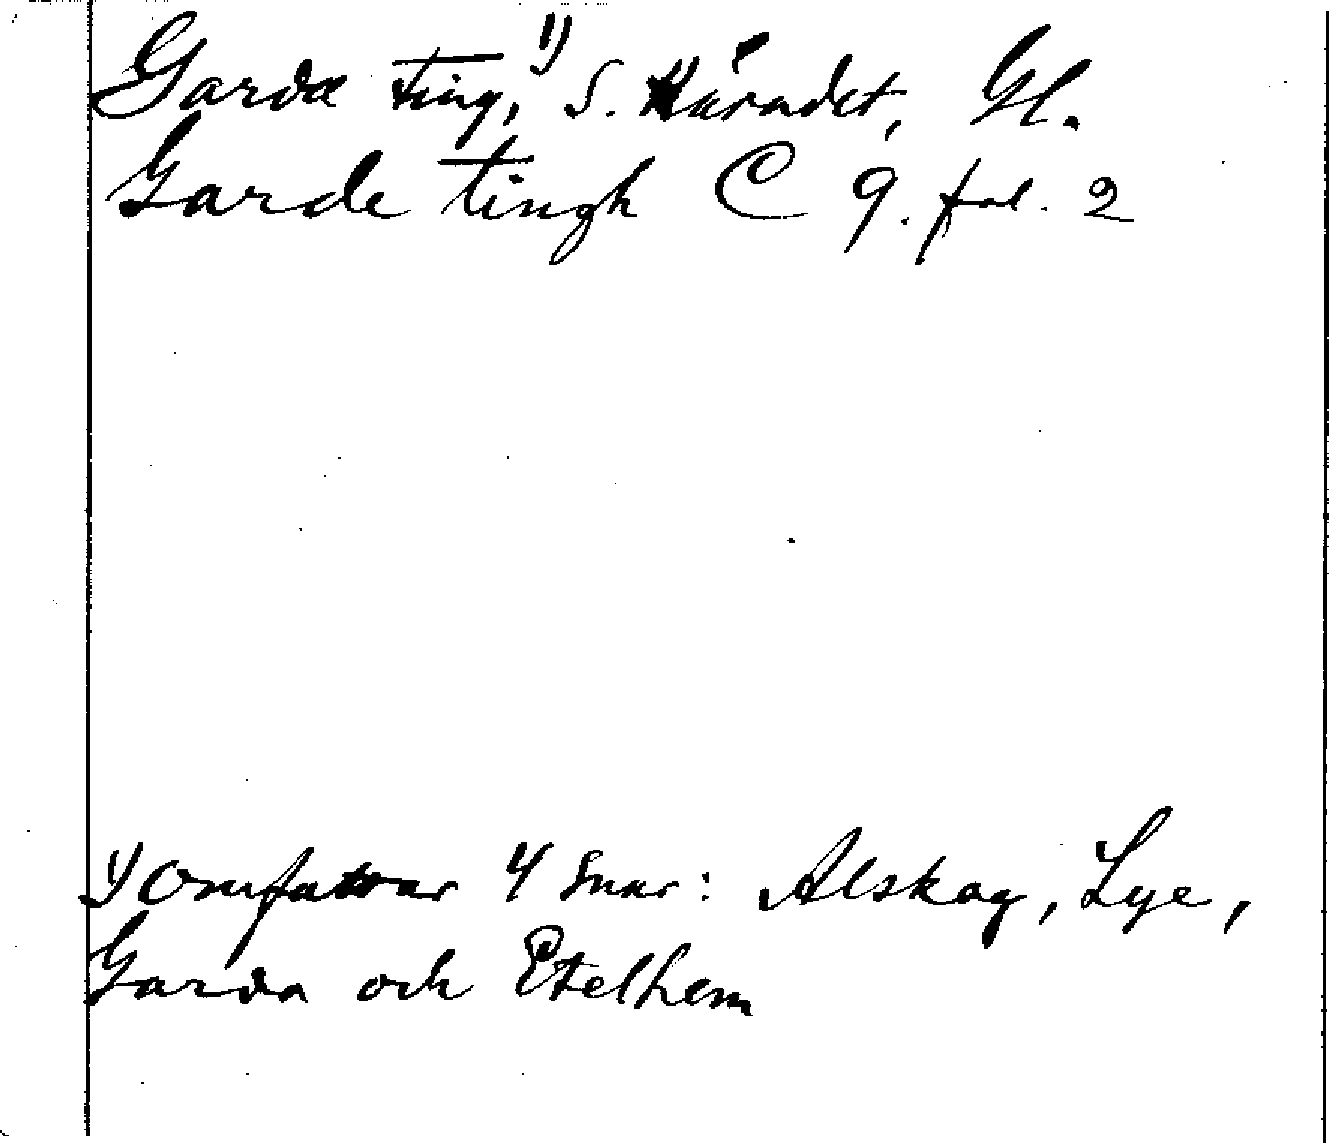 Garda ting,¹⁾ S. Häradet, Gl.
Garde tingh C 9. fol. 2
1) Omfattar 4 snar: Alskog, Lye,
Garda och Etelhem